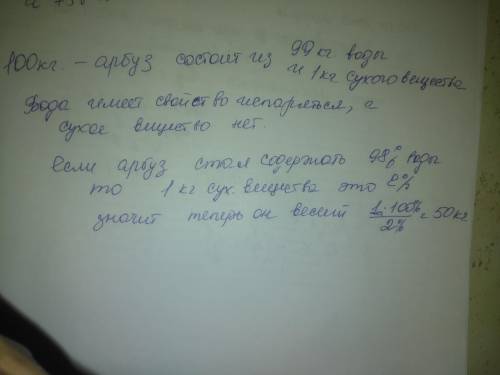 100кг. – арбуз состоит из 99 кг воды
и 1 кг сухого вещества
Вода имеет свойство испаряться, а
сухое вещество нет.
если арбуз стал содержать 98% воды
то 1 кг сух. вещества это 2%
значит теперь он весит 1·100%/2% = 50 кг